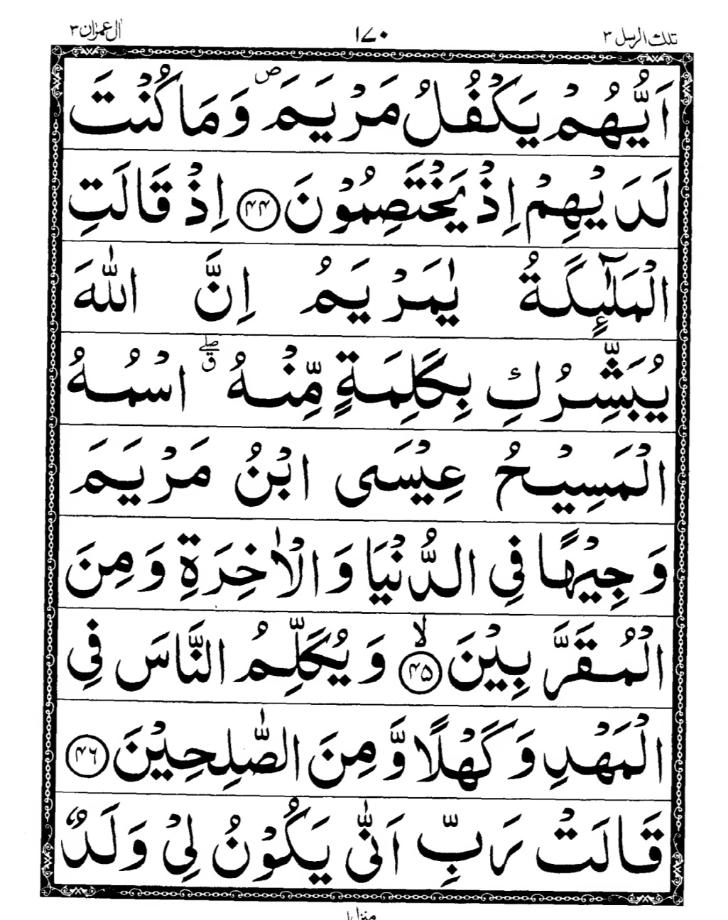 تلك الرسل ٣ ١٧٠ ال عمران ٣
اَيُّهُمْ يَكْفُلُ مَرْيَمَ ۪ وَمَا كُنْتَ
لَدَيْهِمْ اِذْ يَخْتَصِمُوْنَ ﴿۴۴﴾ اِذْ قَالَتِ
الْمَلٰٓىِٕكَةُ يٰمَرْيَمُ اِنَّ اللّٰهَ
يُبَشِّرُكِ بِكَلِمَةٍ مِّنْهُ ۖۗ اسْمُهُ
الْمَسِيْحُ عِيْسَى ابْنُ مَرْيَمَ
وَجِيْهًا فِي الدُّنْيَا وَالْاٰخِرَةِ وَمِنَ
الْمُقَرَّبِيْنَ ۙ﴿۴۵﴾ وَيُكَلِّمُ النَّاسَ فِي
الْمَهْدِ وَكَهْلًا وَّمِنَ الصّٰلِحِيْنَ ﴿۴۶﴾
قَالَتْ رَبِّ اَنّٰى يَكُوْنُ لِيْ وَلَدٌ
منزل ١